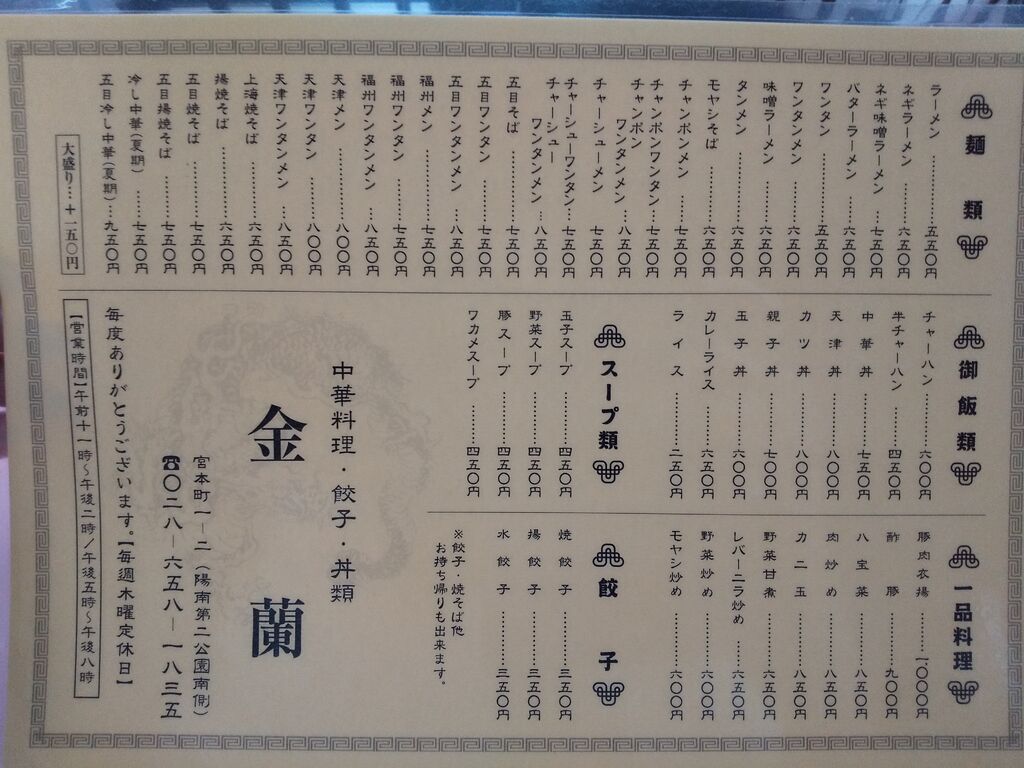 麺類
ラーメン…………五五〇円
ネギラーメン……六五〇円
ネギ味噌ラーメン…七五〇円
バターラーメン…六五〇円
ワンタン…………五五〇円
ワンタンメン……六五〇円
味噌ラーメン……六五〇円
タンメン…………六五〇円
モヤシそば………六五〇円
チャンポンメン…七五〇円
チャンポンワンタン…七五〇円
チャンポン
ワンタンメン…八五〇円
チャーシューメン 七五〇円
チャーシューワンタン…七五〇円
チャーシュー
ワンタンメン…八五〇円
五目そば…………七五〇円
五目ワンタン……七五〇円
五目ワンタンメン…八五〇円
福州メン…………七五〇円
福州ワンタン……七五〇円
福州ワンタンメン…八五〇円
天津メン…………八〇〇円
天津ワンタン……八〇〇円
天津ワンタンメン…八五〇円
上海焼そば………六五〇円
揚焼そば…………六五〇円
五目焼そば………七五〇円
五目揚焼そば……七五〇円
冷し中華(夏期)…七五〇円
五目冷し中華(夏期)…九五〇円
大盛り‥+一五〇円
御飯類
チャーハン………六〇〇円
半チャーハン……四五〇円
中華丼…………七五〇円
天津丼…………八〇〇円
カツ丼…………八〇〇円
親子丼…………七〇〇円
玉子丼…………六〇〇円
カレーライス……六五〇円
ライス…………二五〇円
スープ類
玉子スープ………四五〇円
野菜スープ………四五〇円
豚スープ…………四五〇円
ワカメスープ……四五〇円
一品料理
豚肉衣揚………一、〇〇〇円
酢豚……………九〇〇円
八宝菜…………八五〇円
肉炒め…………八五〇円
カニ玉…………八五〇円
野菜甘煮………六五〇円
レバーニラ炒め…六五〇円
野菜炒め………六〇〇円
モヤシ炒め……六〇〇円
餃子
焼餃子…………三五〇円
揚餃子…………三五〇円
水餃子…………三五〇円
※餃子・焼そば他
お持ち帰りも出来ます。
中華料理・餃子・丼類
金蘭
宮本町一-二(陽南第二公園南側)
☎〇二八-六五八-一八三五
毎度ありがとうございます。【毎週木曜定休日】
【営業時間】午前十一時~午後二時/午後五時~午後八時